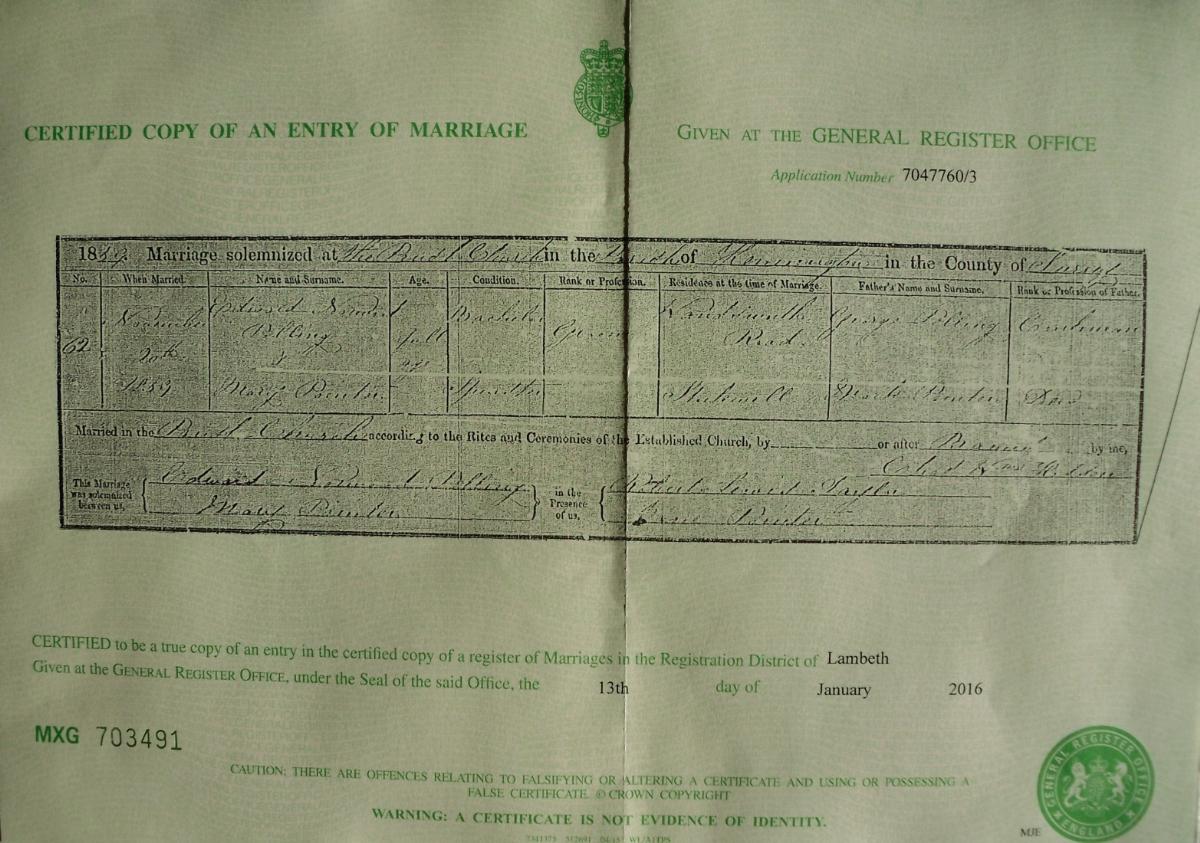 CERTIFIED COPY OF AN ENTRY OF MARRIAGE
GIVEN AT THE GENERAL REGISTER OFFICE
Application Number 7047760/3
1839. Marriage solemnized at the Church in the Parish of Kennington in the County of Surrey
No. When Married. Name and Surname. Age. Condition. Rank or Profession. Residence at the time of Marriage. Father's Name and Surname. Rank or Profession of Father.
62 November 20th 1839
Edward Pilling full age Bachelor Road George Pilling
Mary Spinster Stockwell
Married in the Church according to the Rites and Ceremonies of the Established Church, by or after by me,
This Marriage was solemnized between us, Edward Pilling in the Presence of us, Robert Lewis Taylor
Mary
CERTIFIED to be a true copy of an entry in the certified copy of a register of Marriages in the Registration District of Lambeth
Given at the GENERAL REGISTER OFFICE, under the Seal of the said Office, the 13th day of January 2016
MXG 703491
CAUTION: THERE ARE OFFENCES RELATING TO FALSIFYING OR ALTERING A CERTIFICATE AND USING OR POSSESSING A
FALSE CERTIFICATE. © CROWN COPYRIGHT
WARNING: A CERTIFICATE IS NOT EVIDENCE OF IDENTITY.
GENERAL REGISTER OFFICE
ENGLAND
MJE